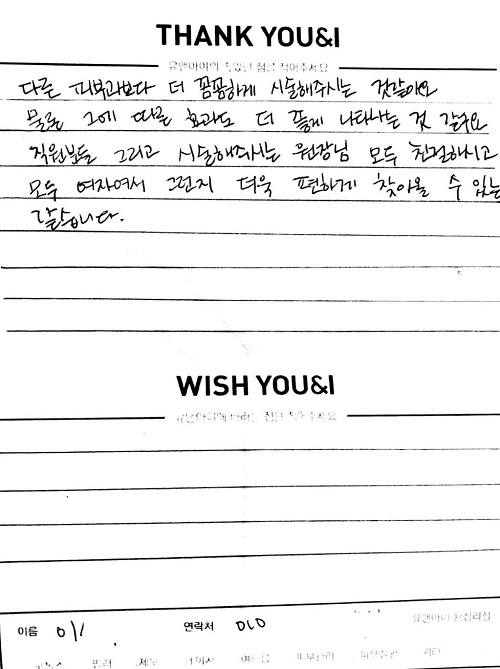 THANK YOU&I
유앤아이의 좋았던 점을 적어주세요
다른 피부과보다 더 꼼꼼하게 시술해주시는 것같아요
물론 그에 따른 효과도 더 플게 나타나는 것 같구요
직원분들 그리고 시술해주시는 원장님 모두 친절하시고
모두 여자여서 그런지 더욱 편하게 찾아올 수 있는
같습니다.
WISH YOU&I
유앤아이에 바라는 점을 적어주세요
이름 연락처
유앤아이 왕십리점
제모 여드름 피부관리 기타